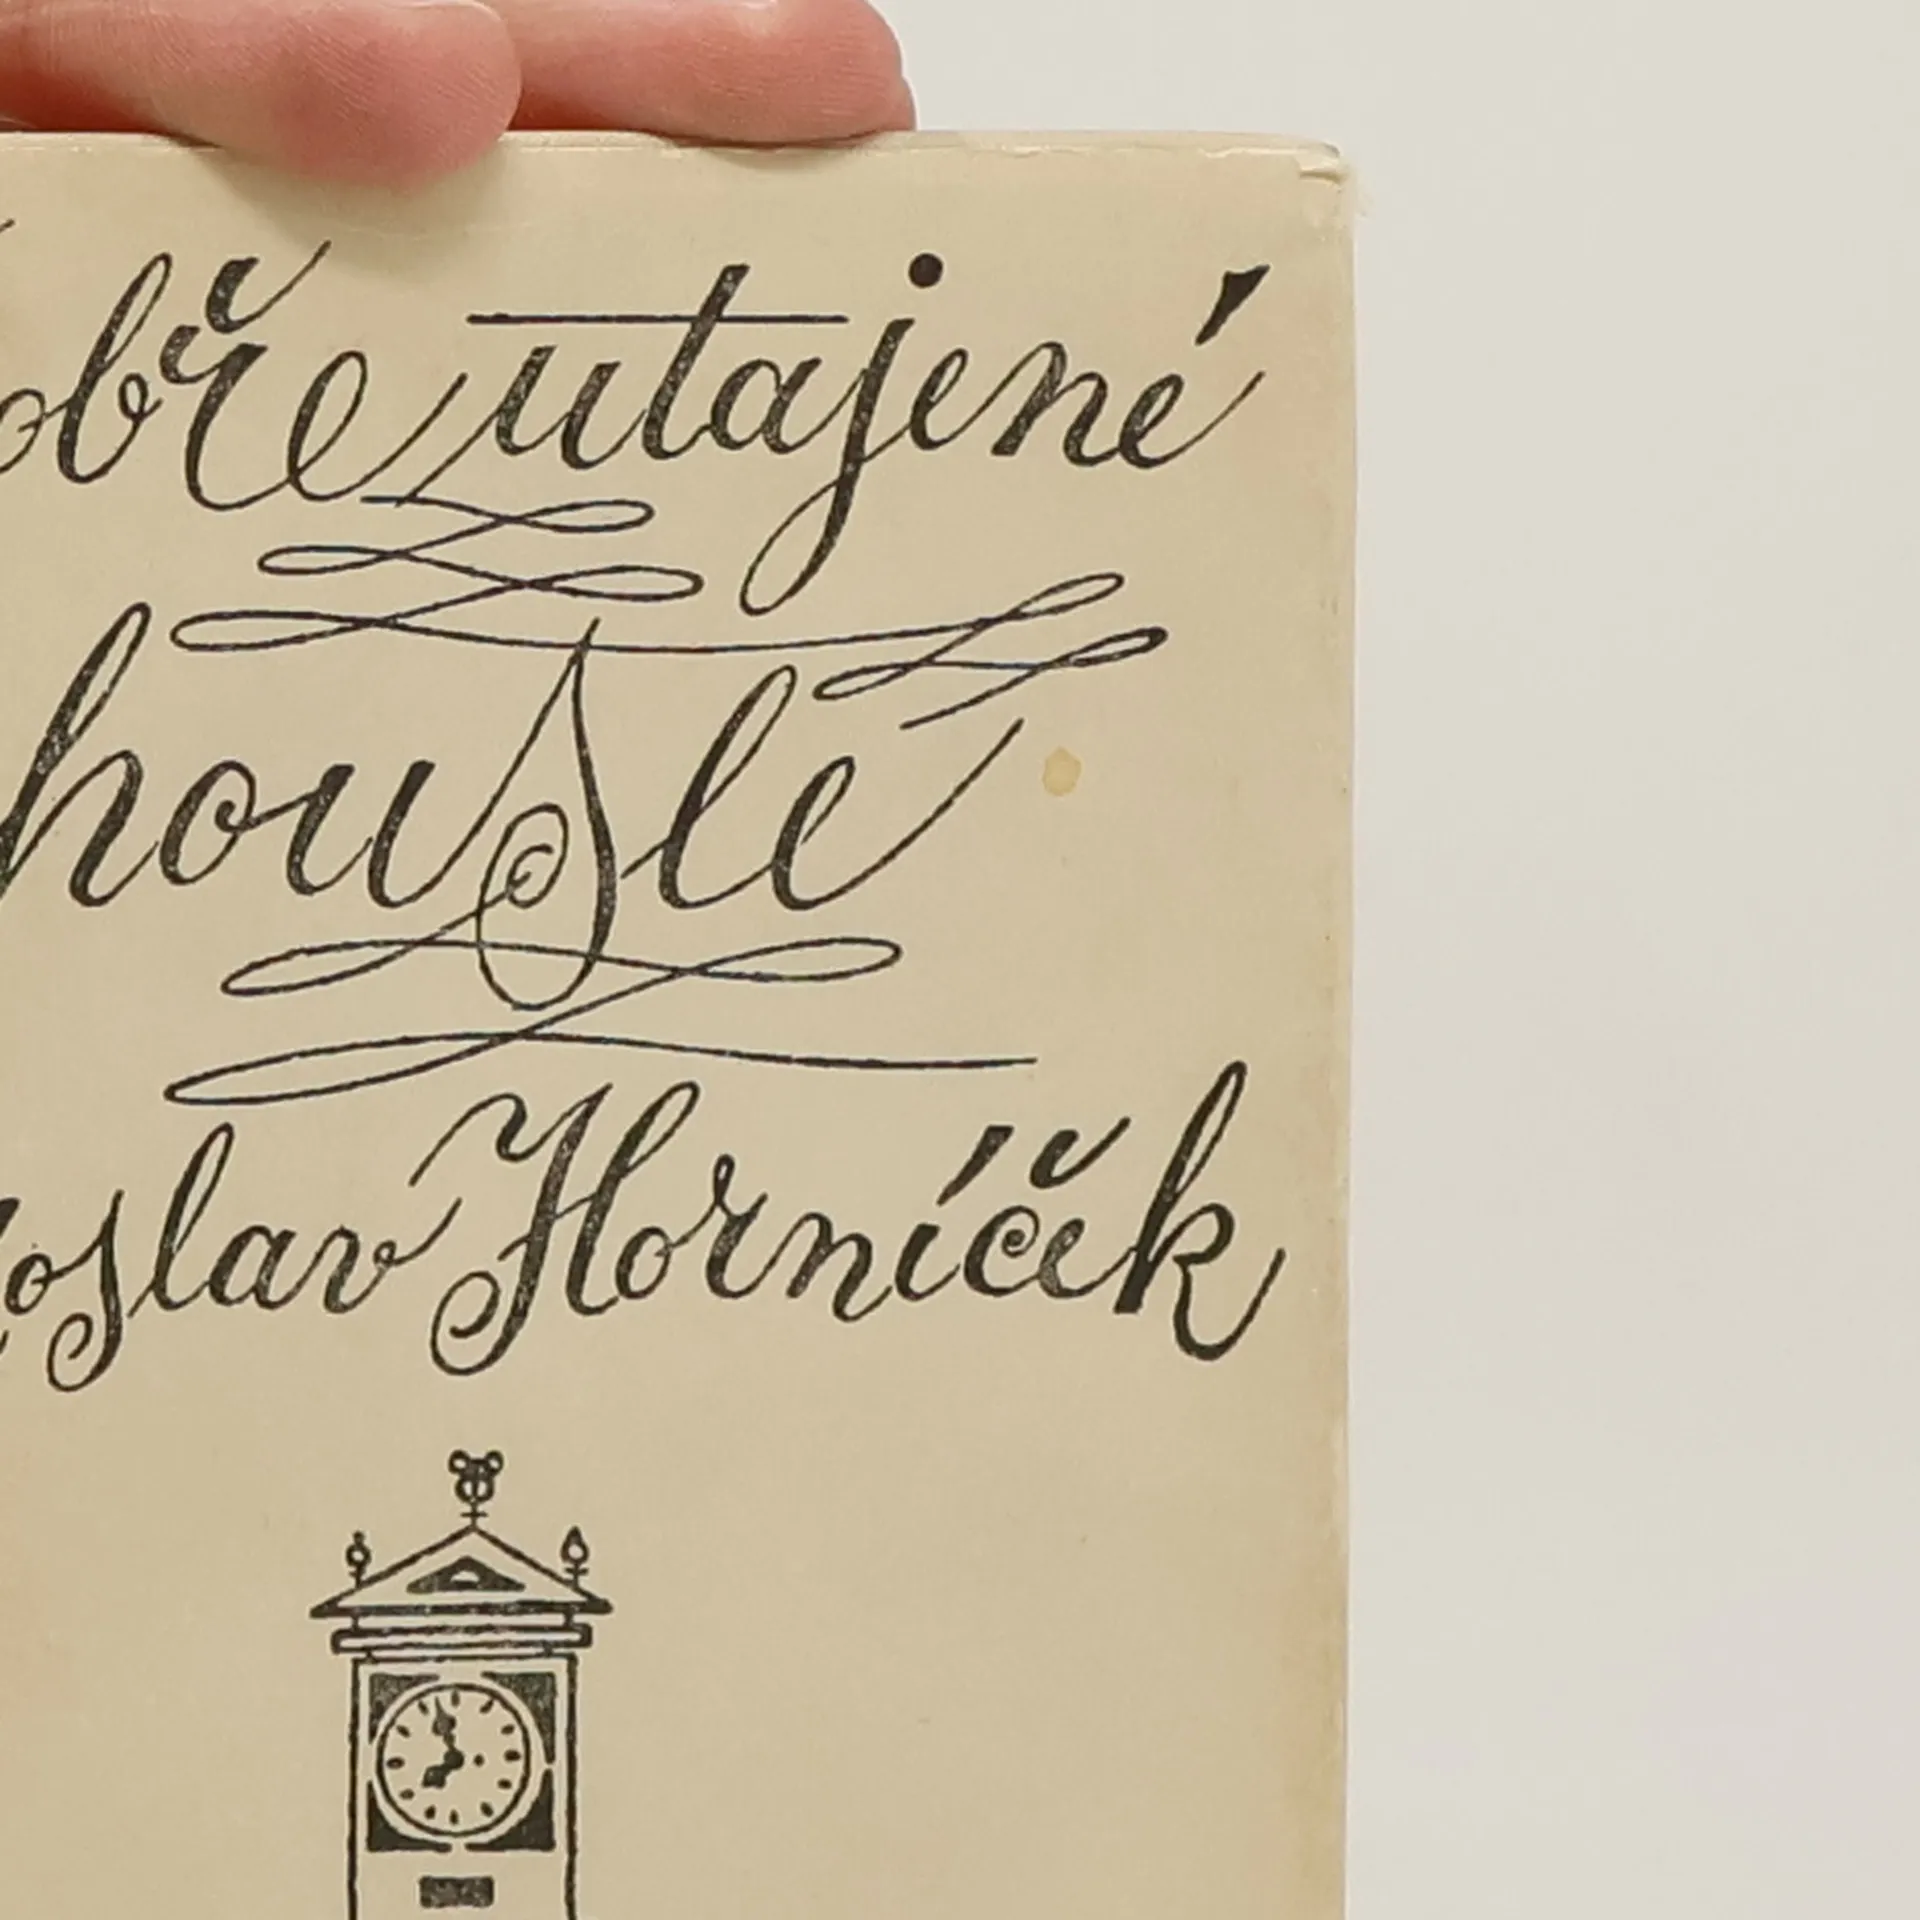 obře utajené
housle
oslav Horníček